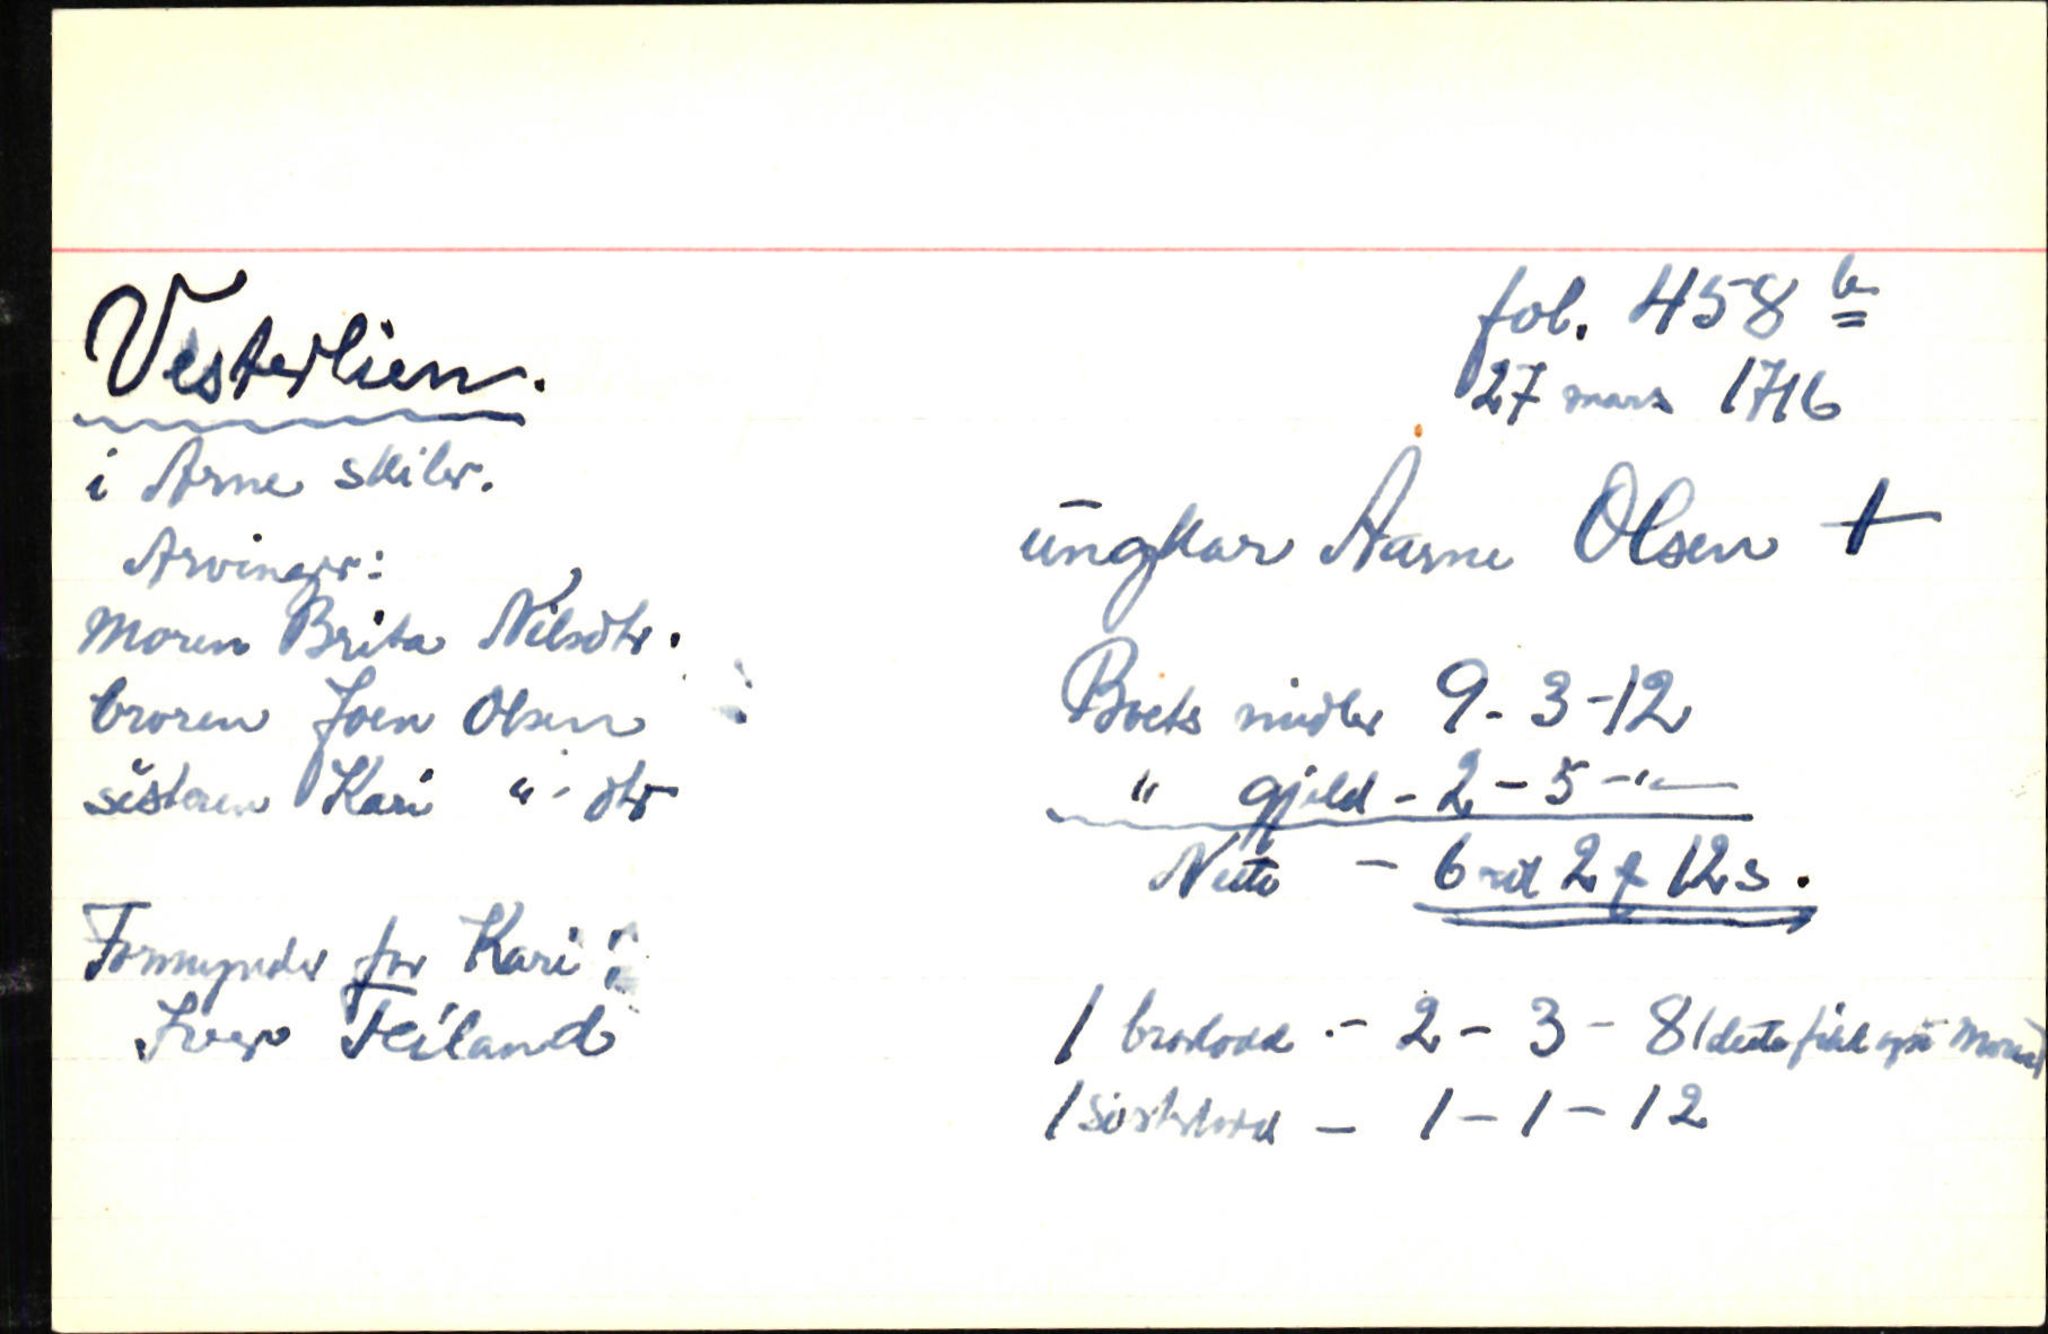 Vesterlien.
fol. 458 b
27 mars 1716
i Arne skiber.
ungkar Aarne Olsen +
Arvinger:
Moren Brita Nilsdtr.
broren Joen Olsen
Boets midler 9-3-12
søsteren Kari "- dtr
" gjeld - 2 - 5 - "
Netto - 6 rd 2 f 12 s.
Formynder for Kari:
Iver Teiland
1 brorlodd - 2 - 3 - 8 (dette fikk også Moren)
1 søsterlodd - 1 - 1 - 12